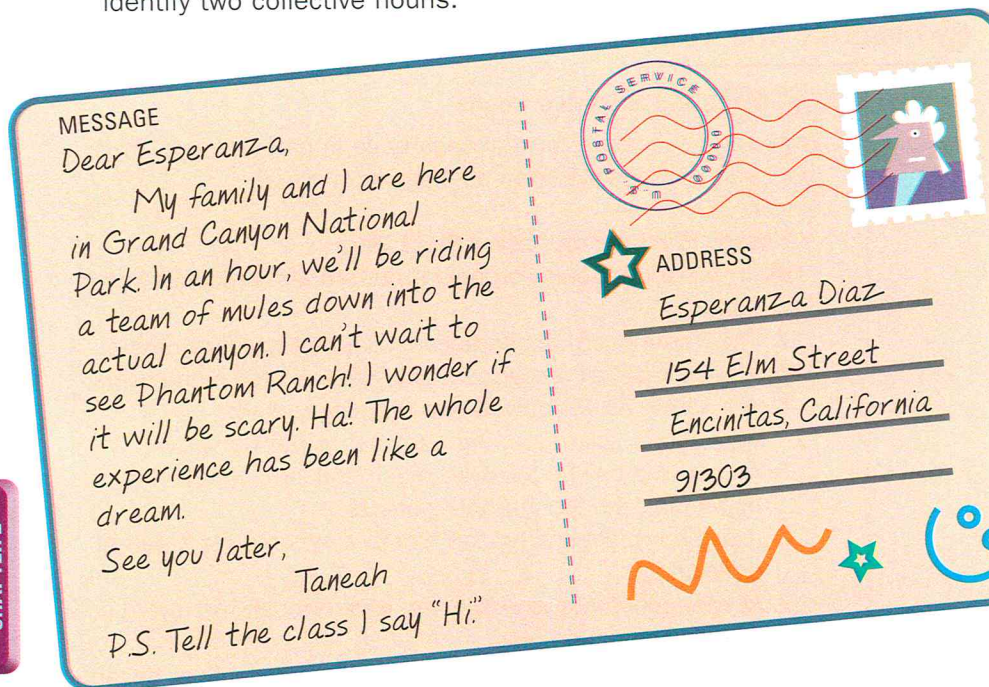 identify two collective nouns.
MESSAGE
Dear Esperanza,
My family and I are here
in Grand Canyon National
Park. In an hour, we'll be riding
a team of mules down into the
actual canyon. I can't wait to
see Phantom Ranch! I wonder if
it will be scary. Ha! The whole
experience has been like a
dream.
See you later,
Taneah
P.S. Tell the class I say "Hi."
U.S. POSTAL SERVICE 00000
ADDRESS
Esperanza Diaz
154 Elm Street
Encinitas, California
91303